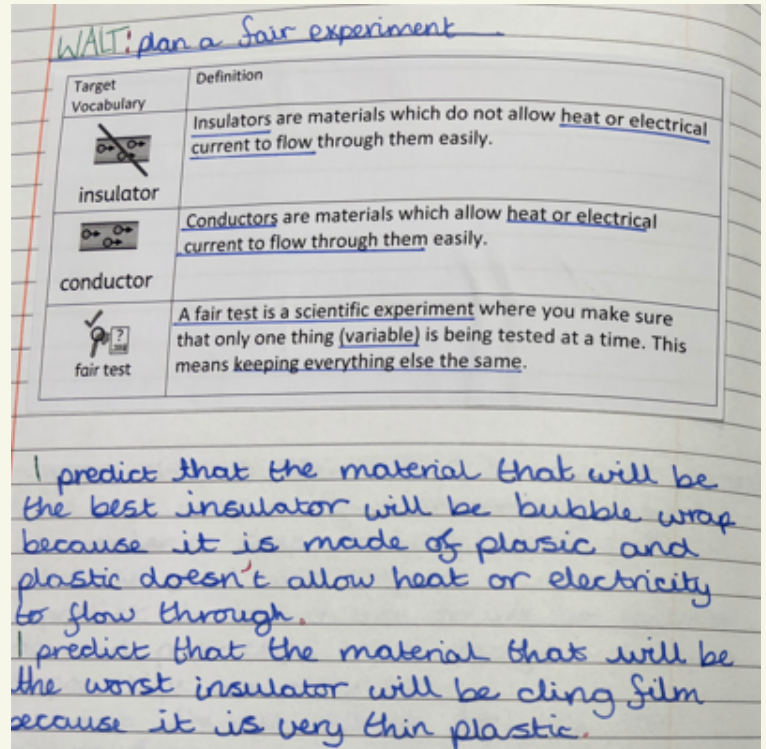 WALT: plan a fair experiment
Target
Vocabulary
Definition
insulator
Insulators are materials which do not allow heat or electrical
current to flow through them easily.
conductor
Conductors are materials which allow heat or electrical
current to flow through them easily.
fair test
A fair test is a scientific experiment where you make sure
that only one thing (variable) is being tested at a time. This
means keeping everything else the same.
I predict that the material that will be
the best insulator will be bubble wrap
because it is made of plasic and
plastic doesn't allow heat or electricity
to flow through.
I predict that the material that will be
the worst insulator will be cling film
because it is very thin plastic.